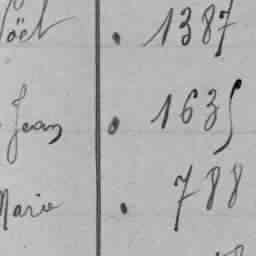 Noël . 1387
Jean . 1635
Marie . 788